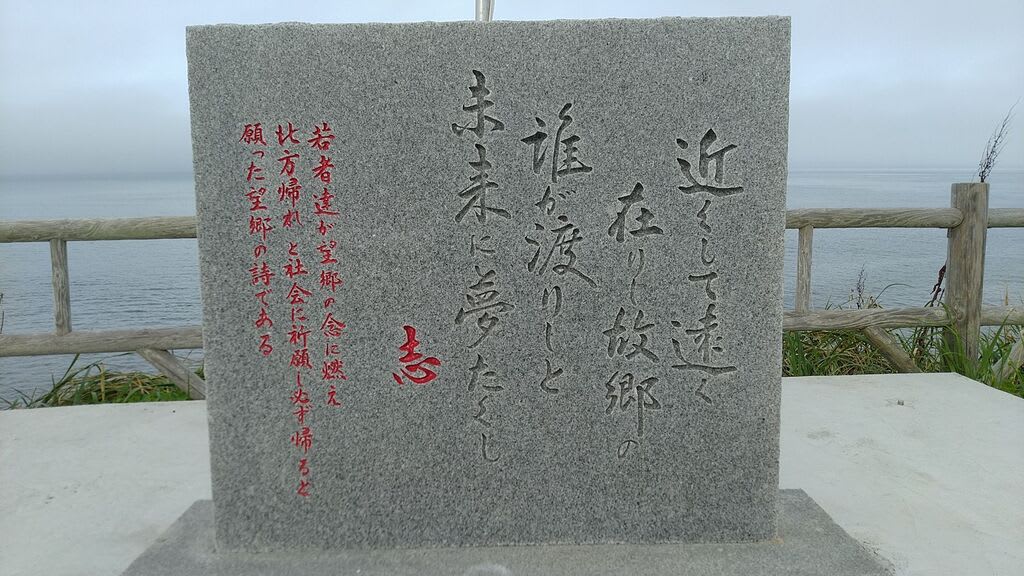 近くして遠く
在りし故郷の
誰が渡りしと
未来に夢たくし
志
若者達が望郷の念に燃え
北方帰れと社会に祈願し必ず帰ると
願った望郷の詩である